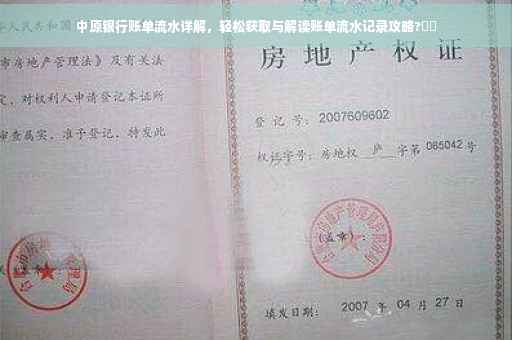 中原银行账单流水详解，轻松获取与解读账单流水记录攻略?
华人民共和国
市房地产管理法》及有关
定，对权利人申请登记本证所
审查属实，准予登记，特发此
房地产权证
登 记 号：2007609602
权证字号：房地权 庐 字第 065042 号
(盖章)：
填发日期： 2007 年 04 月 27 日